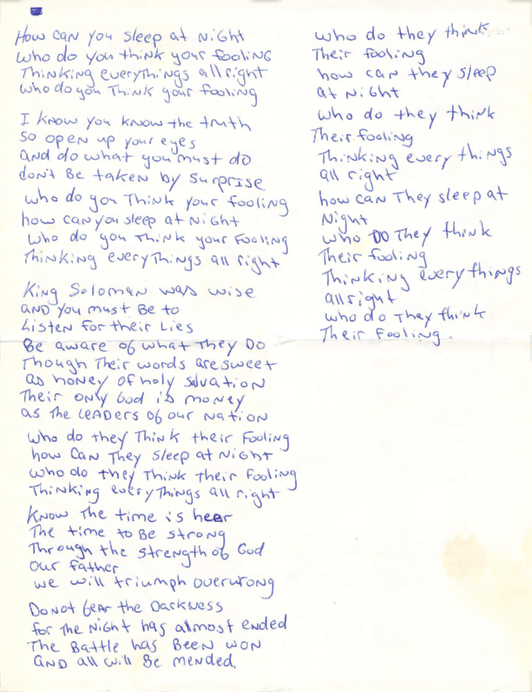 How can you sleep at Night
who do you think your fooling
Thinking everythings all right
who do you Think your fooling
I know you know the truth
so open up your eyes
and do what you must do
don't Be taken by surprise
who do you Think your fooling
how can you sleep at Night
who do you Think your Fooling
Thinking everyThings all right
King Soloman was wise
and you must Be to
Listen for their Lies
Be aware of what They Do
Though Their words are sweet
as honey of holy salvation
Their only God is money
as The LEADERS of our Nation
who do they Think their Fooling
how Can They sleep at Night
who do they Think Their fooling
Thinking everyThings all right
Know The time is hear
The time to Be strong
Through the strength of God
our father
we will triumph over wrong
Do not fear the Darkness
for The Night has almost ended
The Battle has Been won
AND all will Be mended.
who do they think
Their fooling
how can they sleep
at Night
who do they think
Their fooling
Thinking every things
all right
how can They sleep at
Night
who DO They think
Their fooling
Thinking every things
all right
who do They think
Their fooling.